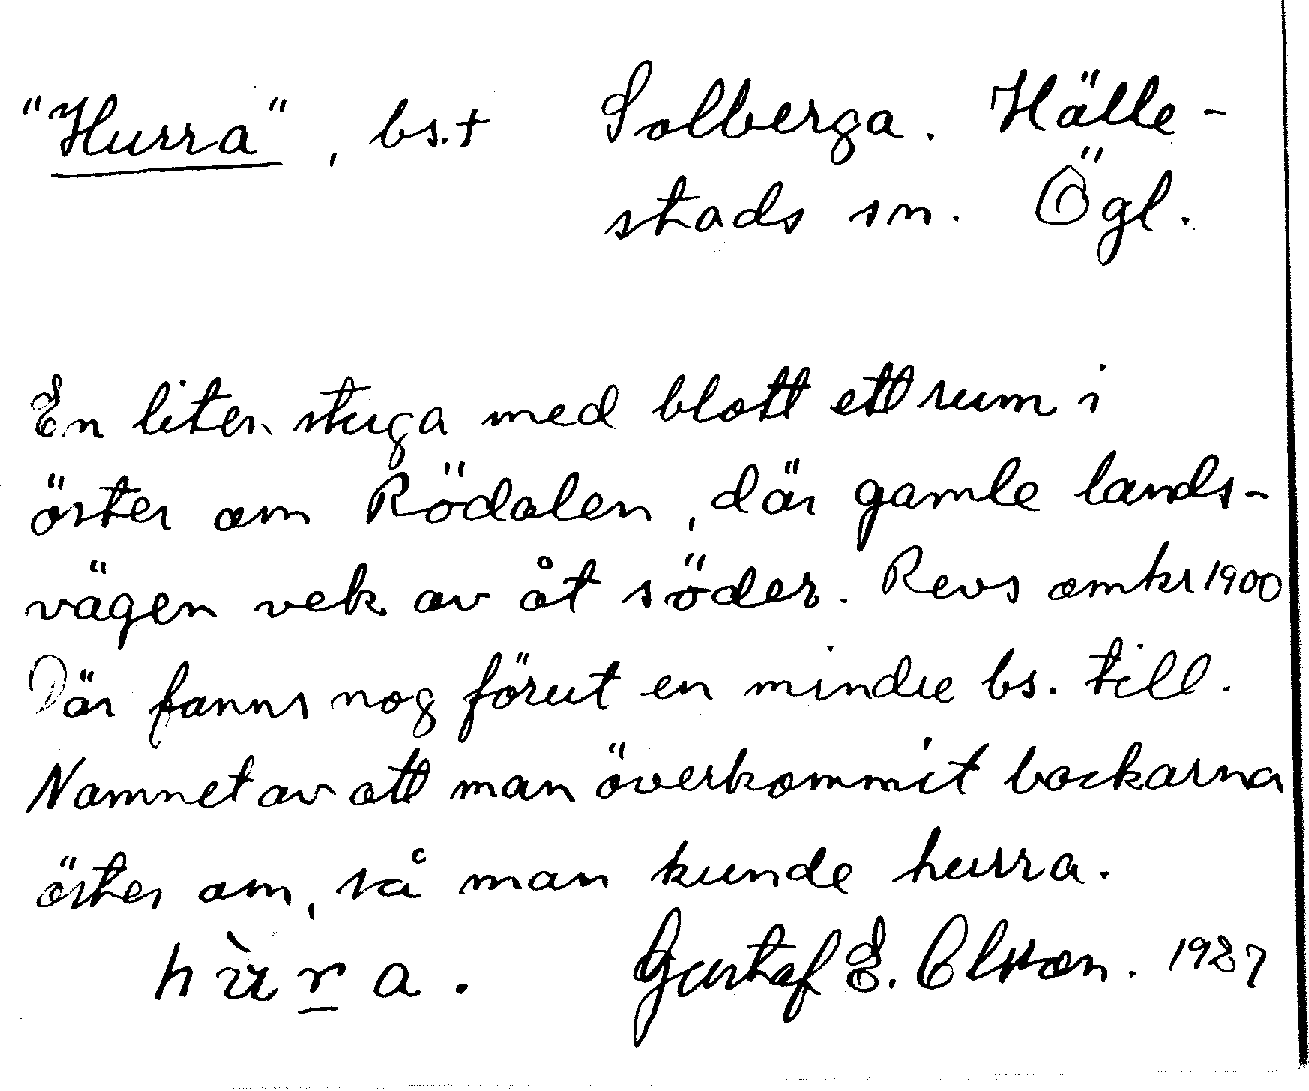 "Hurra", bs.† Solberga. Hälle-
stads sn. Ögl.
En liten stuga med blott ett rum i
öster om Rödalen, där gamle lands-
vägen vek av åt söder. Revs omkr 1900
Där fanns nog förut en mindre bs. till.
Namnet av att man överkommit backarna
öster om, så man kunde hurra.
hùra. Gustaf E. Olsson. 1937